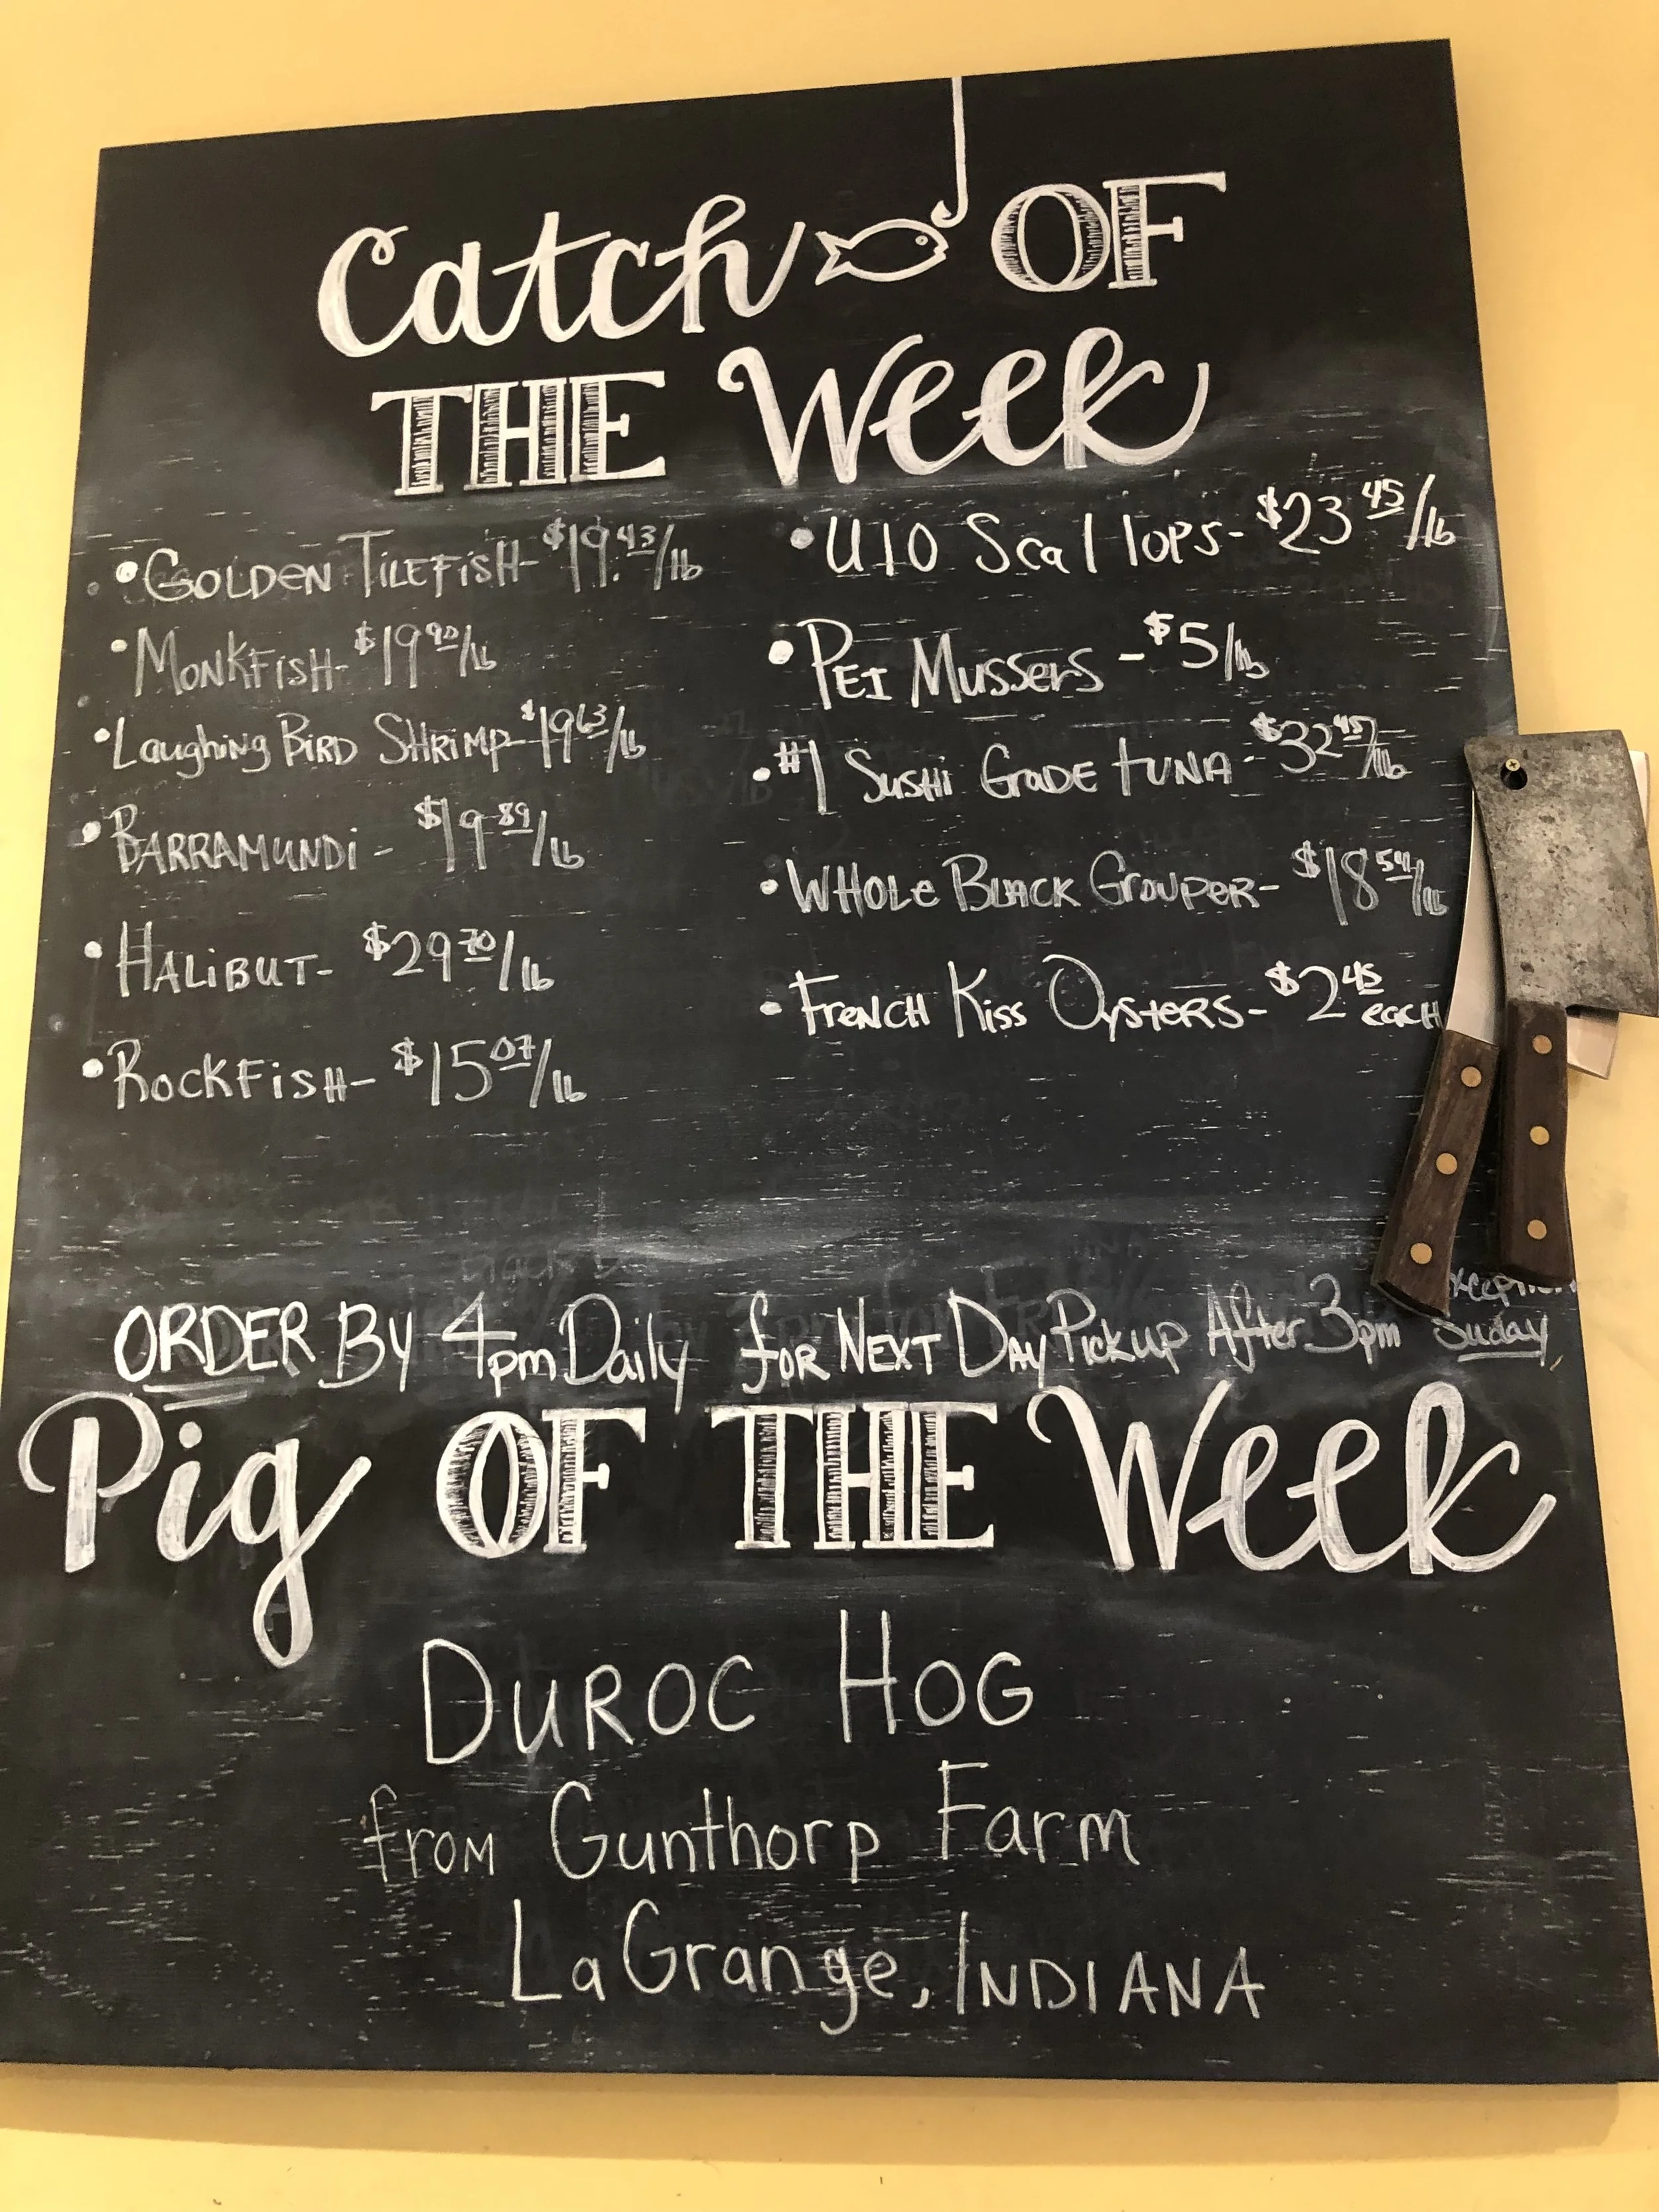 Catch OF
THE Week
• GOLDEN TILEFISH- $19.43/lb
• MONKFISH- $19 90/lb
• Laughing BIRD SHRIMP- $19 63/lb
• BARRAMUNDI - $19 89/lb
• HALIBUT- $29 70/lb
• ROCKFISH- $15 07/lb
• U10 Scallops- $23 45/lb
• PEI Mussers - $5/lb
• #1 SUSHI GRADE TUNA - $32 45/lb
• WHOLE BLACK GROUPER- $18 54/lb
• FRENCH KISS OYSTERS- $2 45 each
ORDER BY 4pm Daily for NEXT DAY Pickup After 3pm Suday
Pig OF THE Week
DUROC HOG
from Gunthorp Farm
LaGrange, INDIANA